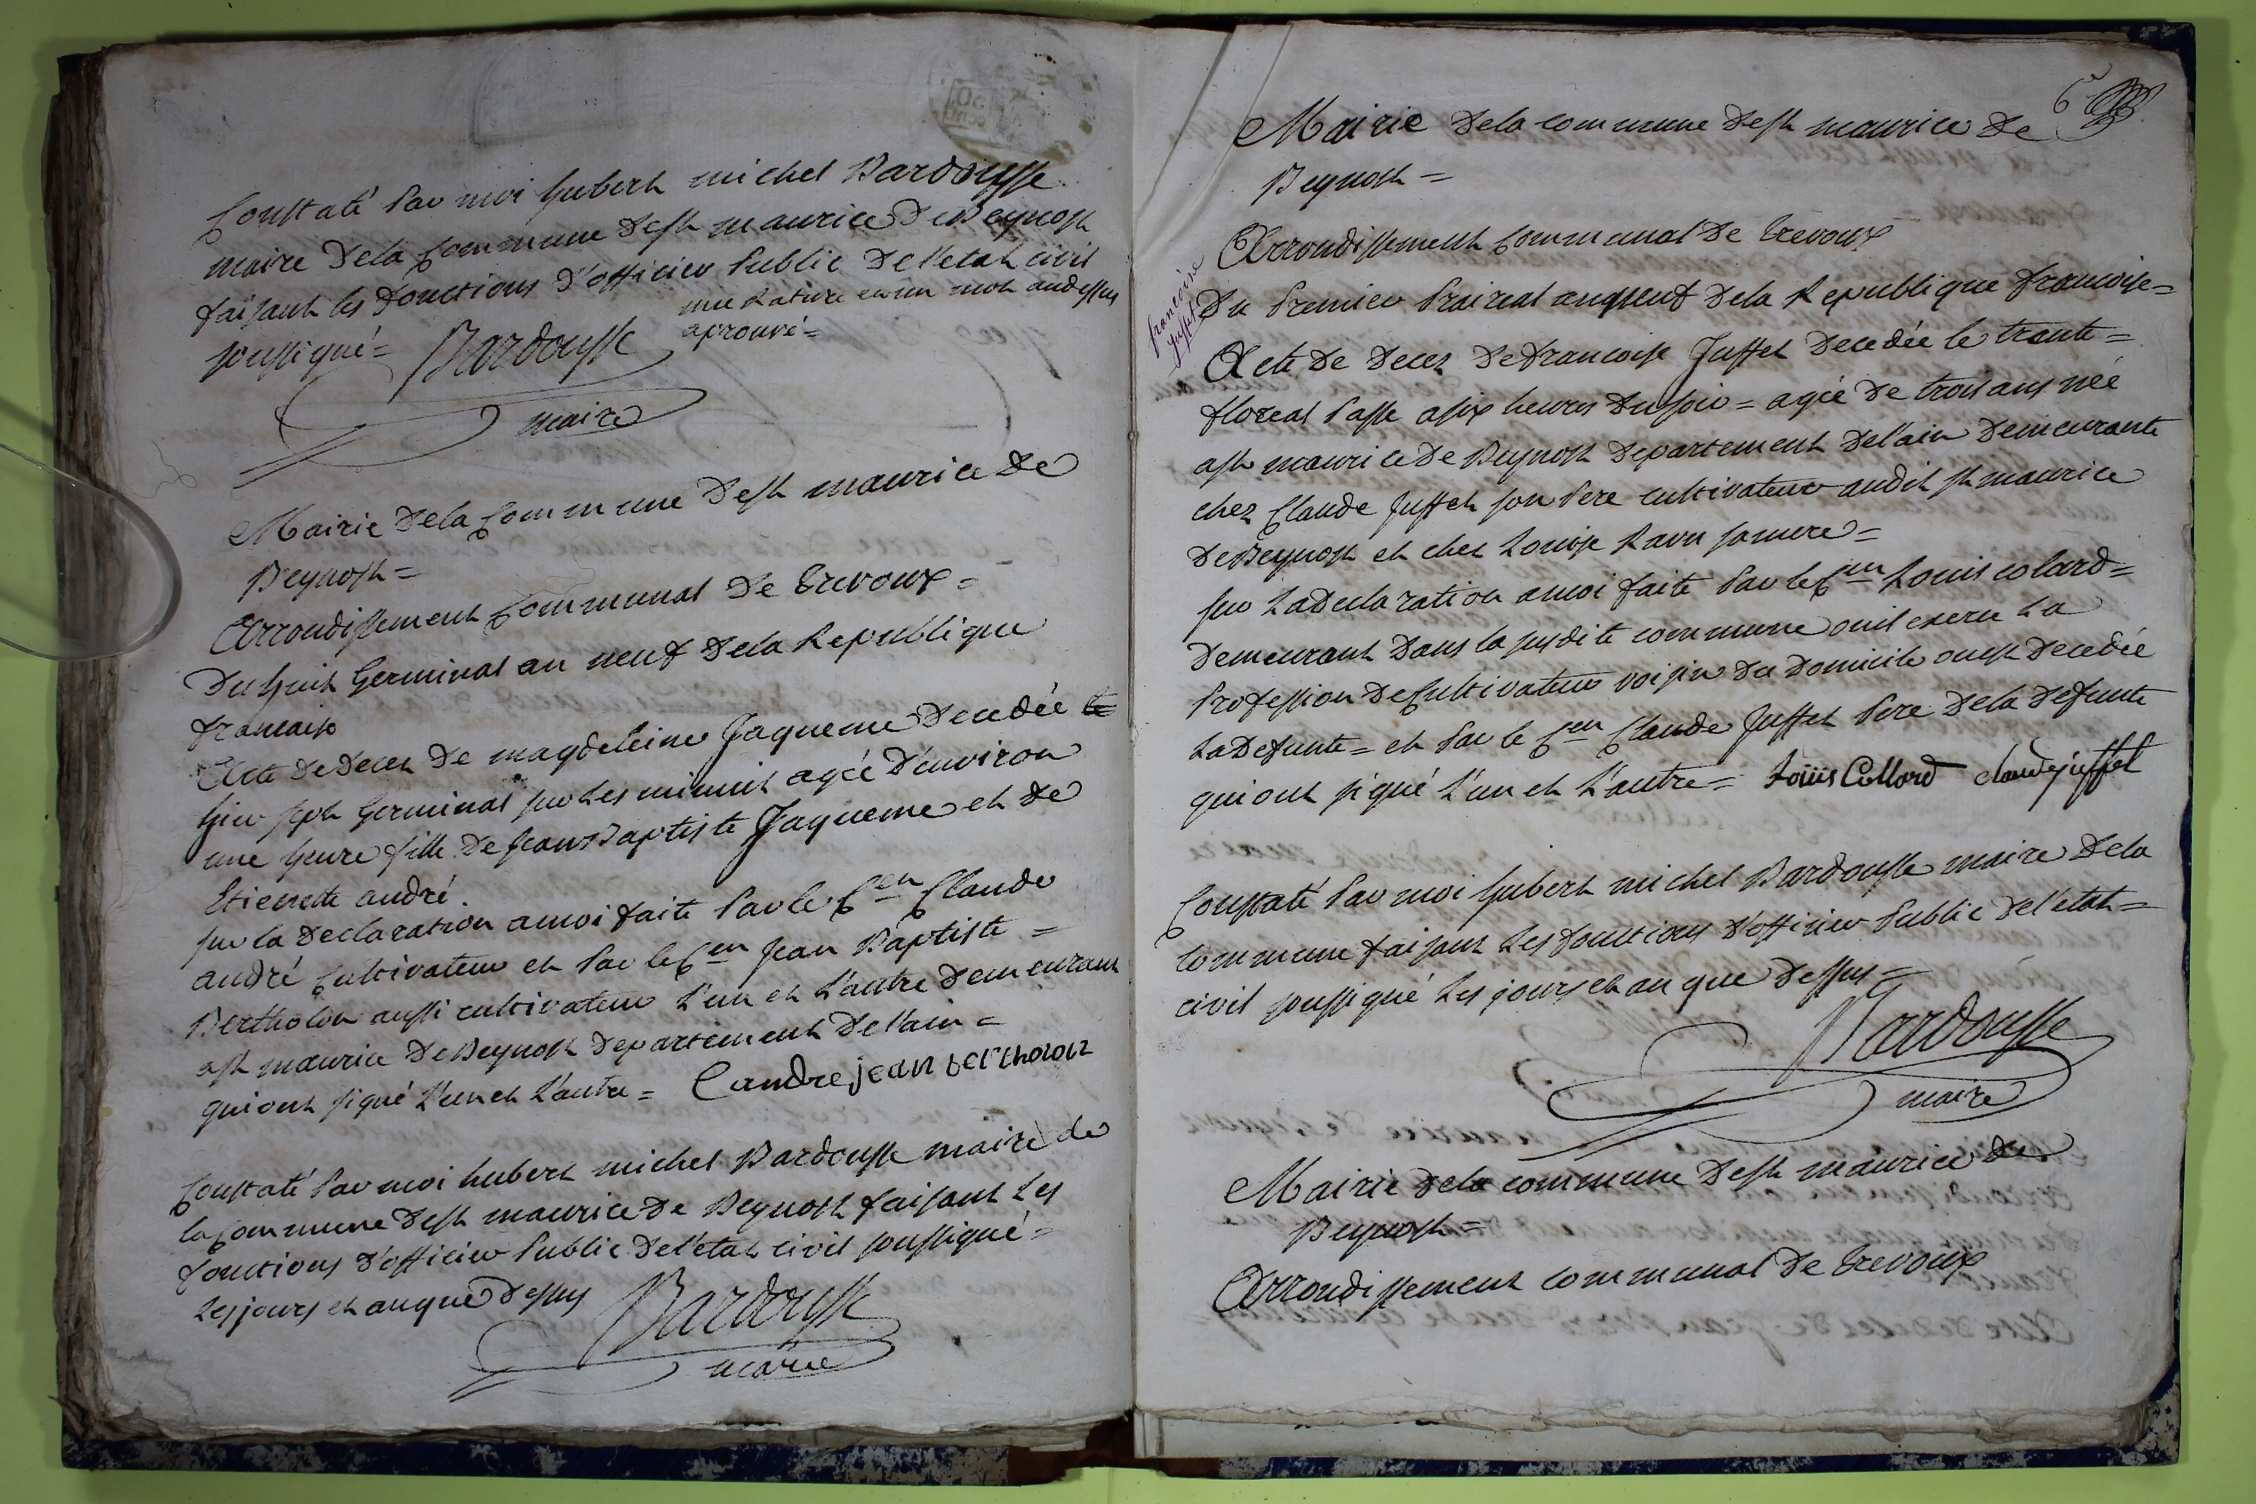 Constaté Par moi hubert michel Bardousse
maire Dela Commune Dest maurice De Beynost
faisant les fonctions D'officier Public De l'etat civil
soussigné = Bardousse
une Rature en un mot audessus
aprouvé =
maire
Mairie Dela Commune Dest maurice De
Beynost =
Arrondissement Communal De Trevoux =
Du huit Germinal an neuf Dela Republique
francaise
Acte De Deces De magdeleine Jaqueme Decedée le
hier sept Germinal sur Les minuit agée D'environ
une heure fille De Jean Baptiste Jaqueme et de
Etienette andré.
sur la Declaration a moi faite Par le Cen Claude
andré Cultivateur et Par le Cen Jean Baptiste =
Bertholon aussi cultivateur L'un et L'autre Demeurant
ast maurice De Beynost Departement De l'ain =
qui ont signé L'un et L'autre = C andre jean bertholon
Constaté Par moi hubert michel Bardousse maire de
la Commune Dest maurice De Beynost faisant Les
fonctions D'officier Public De l'etat civil soussigné =
Les jours et an que Dessus Bardousse
maire
6e
Mairie Dela commune Dest maurice De
Beynost =
Arrondissement Communal De Trevoux
francoise
juffet
Du Premier Prairial an neuf Dela Republique francoise =
Acte De Deces De francoise Juffet Decedée le trente =
floreal Passe a six heures Du soir = agée De trois ans née
ast maurice De Beynost Departement De l'ain Demeurante
chez Claude Juffet son Pere cultivateur audit st maurice
De Beynost et chez Louise Ravu sa mere =
sur La Declaration a moi faite Par le Cen Louis colard =
Demeurant Dans la susdite commune ou il exerce La
Profession De Cultivateur voisin du Domicile ou est Decedée
La Defunte = et Par le Cen Claude Juffet Pere Dela Defunte
qui ont signé L'un et L'autre = Loüis Collard claude juffet
Constaté Par moi hubert michel Bardousse maire Dela
Commune faisant Les fonctions D'officier Public De l'etat =
civil soussigné Les jours et an que Dessus =
Bardousse
maire
Mairie Dela commune Dest maurice De
Beynost =
Arrondissement Communal De Trevoux